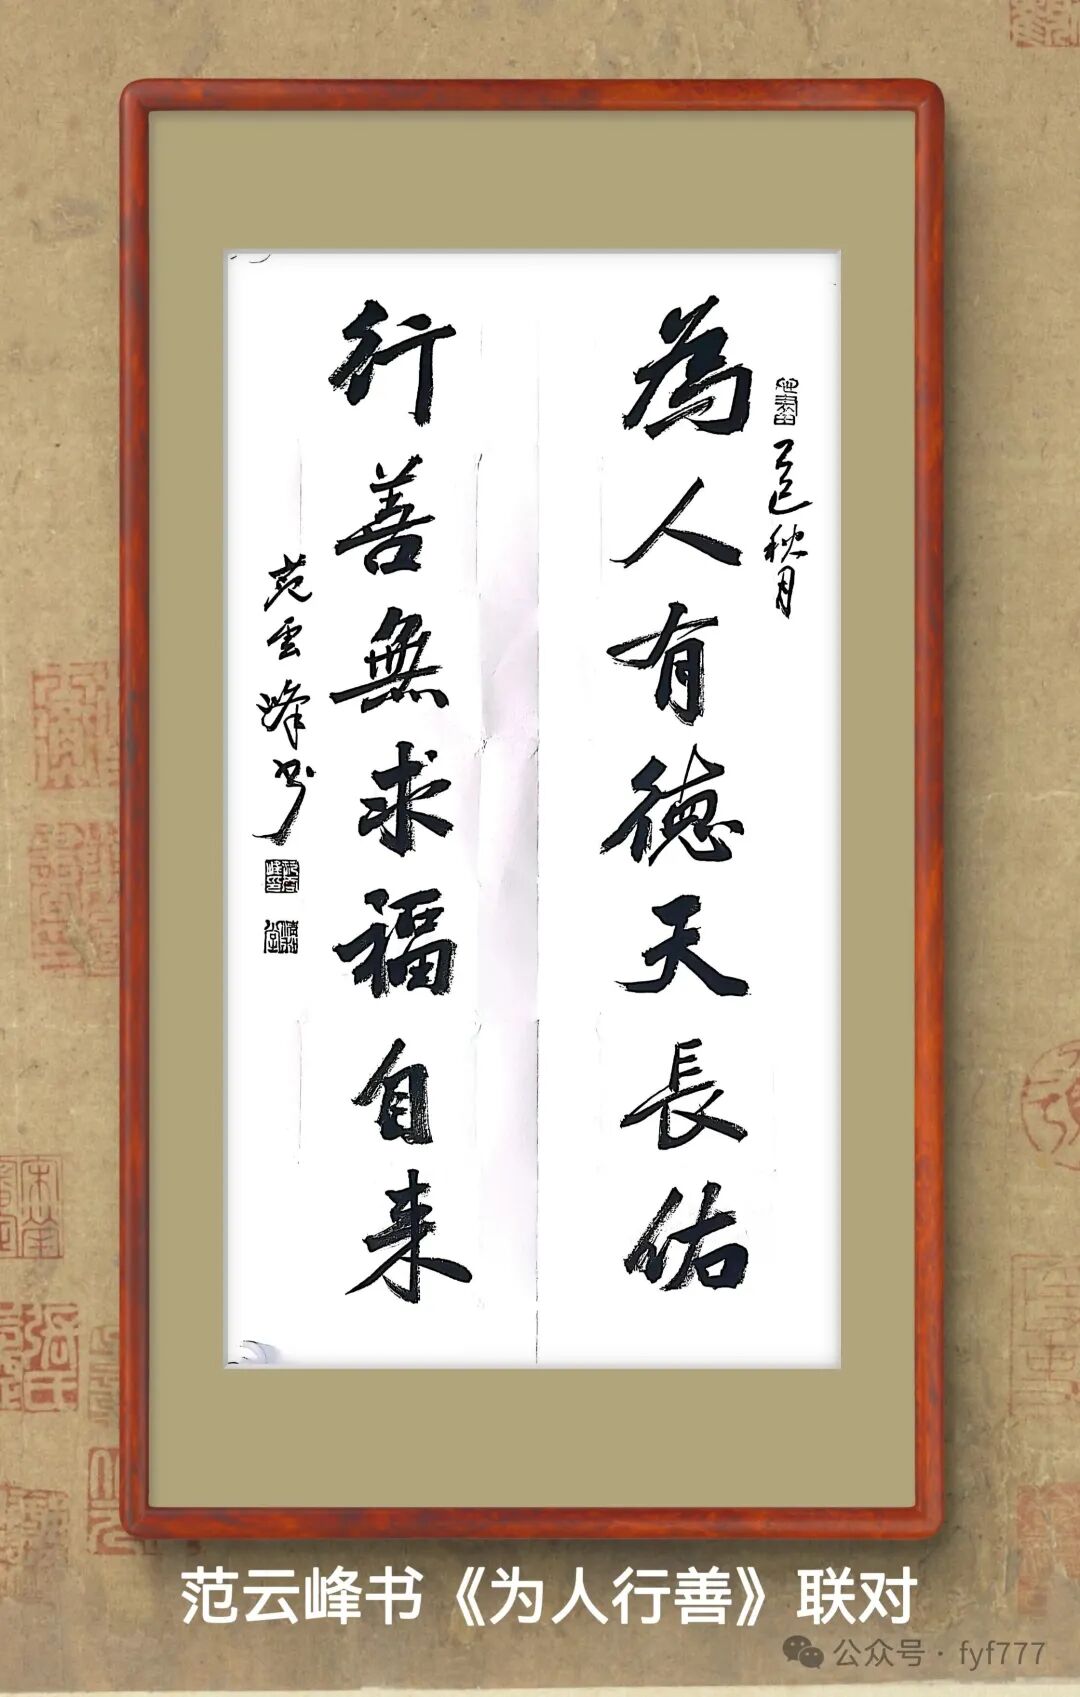 乙巳秋月
為人有德天長佑
行善無求福自来
范雲峰书
范云峰书《为人行善》联对
公众号·fyf777